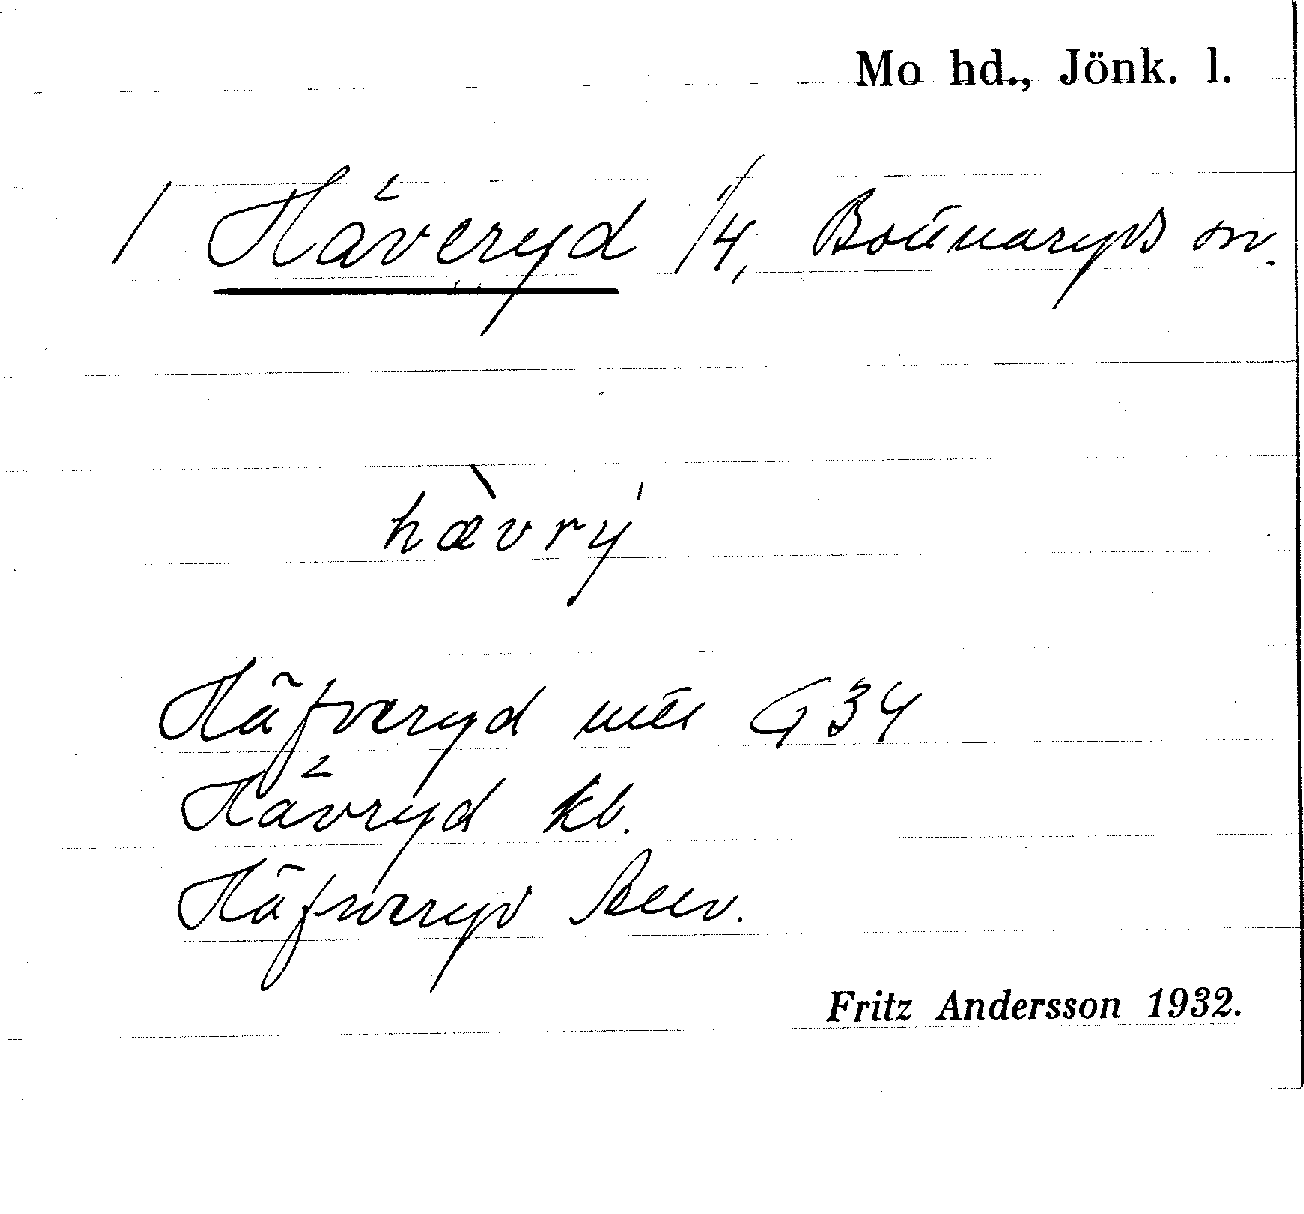 Mo hd., Jönk. l.
/ Häveryd 1/4, Bottnaryds sn.
hævrý
Häfveryd G34
Hävryd kb.
Häfweryd
Fritz Andersson 1932.